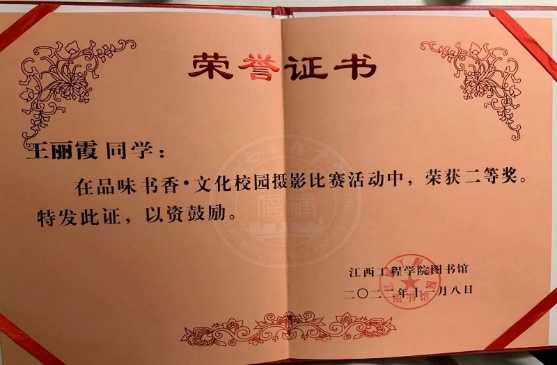 荣誉证书
王丽霞 同学：
在品味书香·文化校园摄影比赛活动中，荣获二等奖。
特发此证，以资鼓励。
江西工程学院图书馆
二〇二二年十一月八日